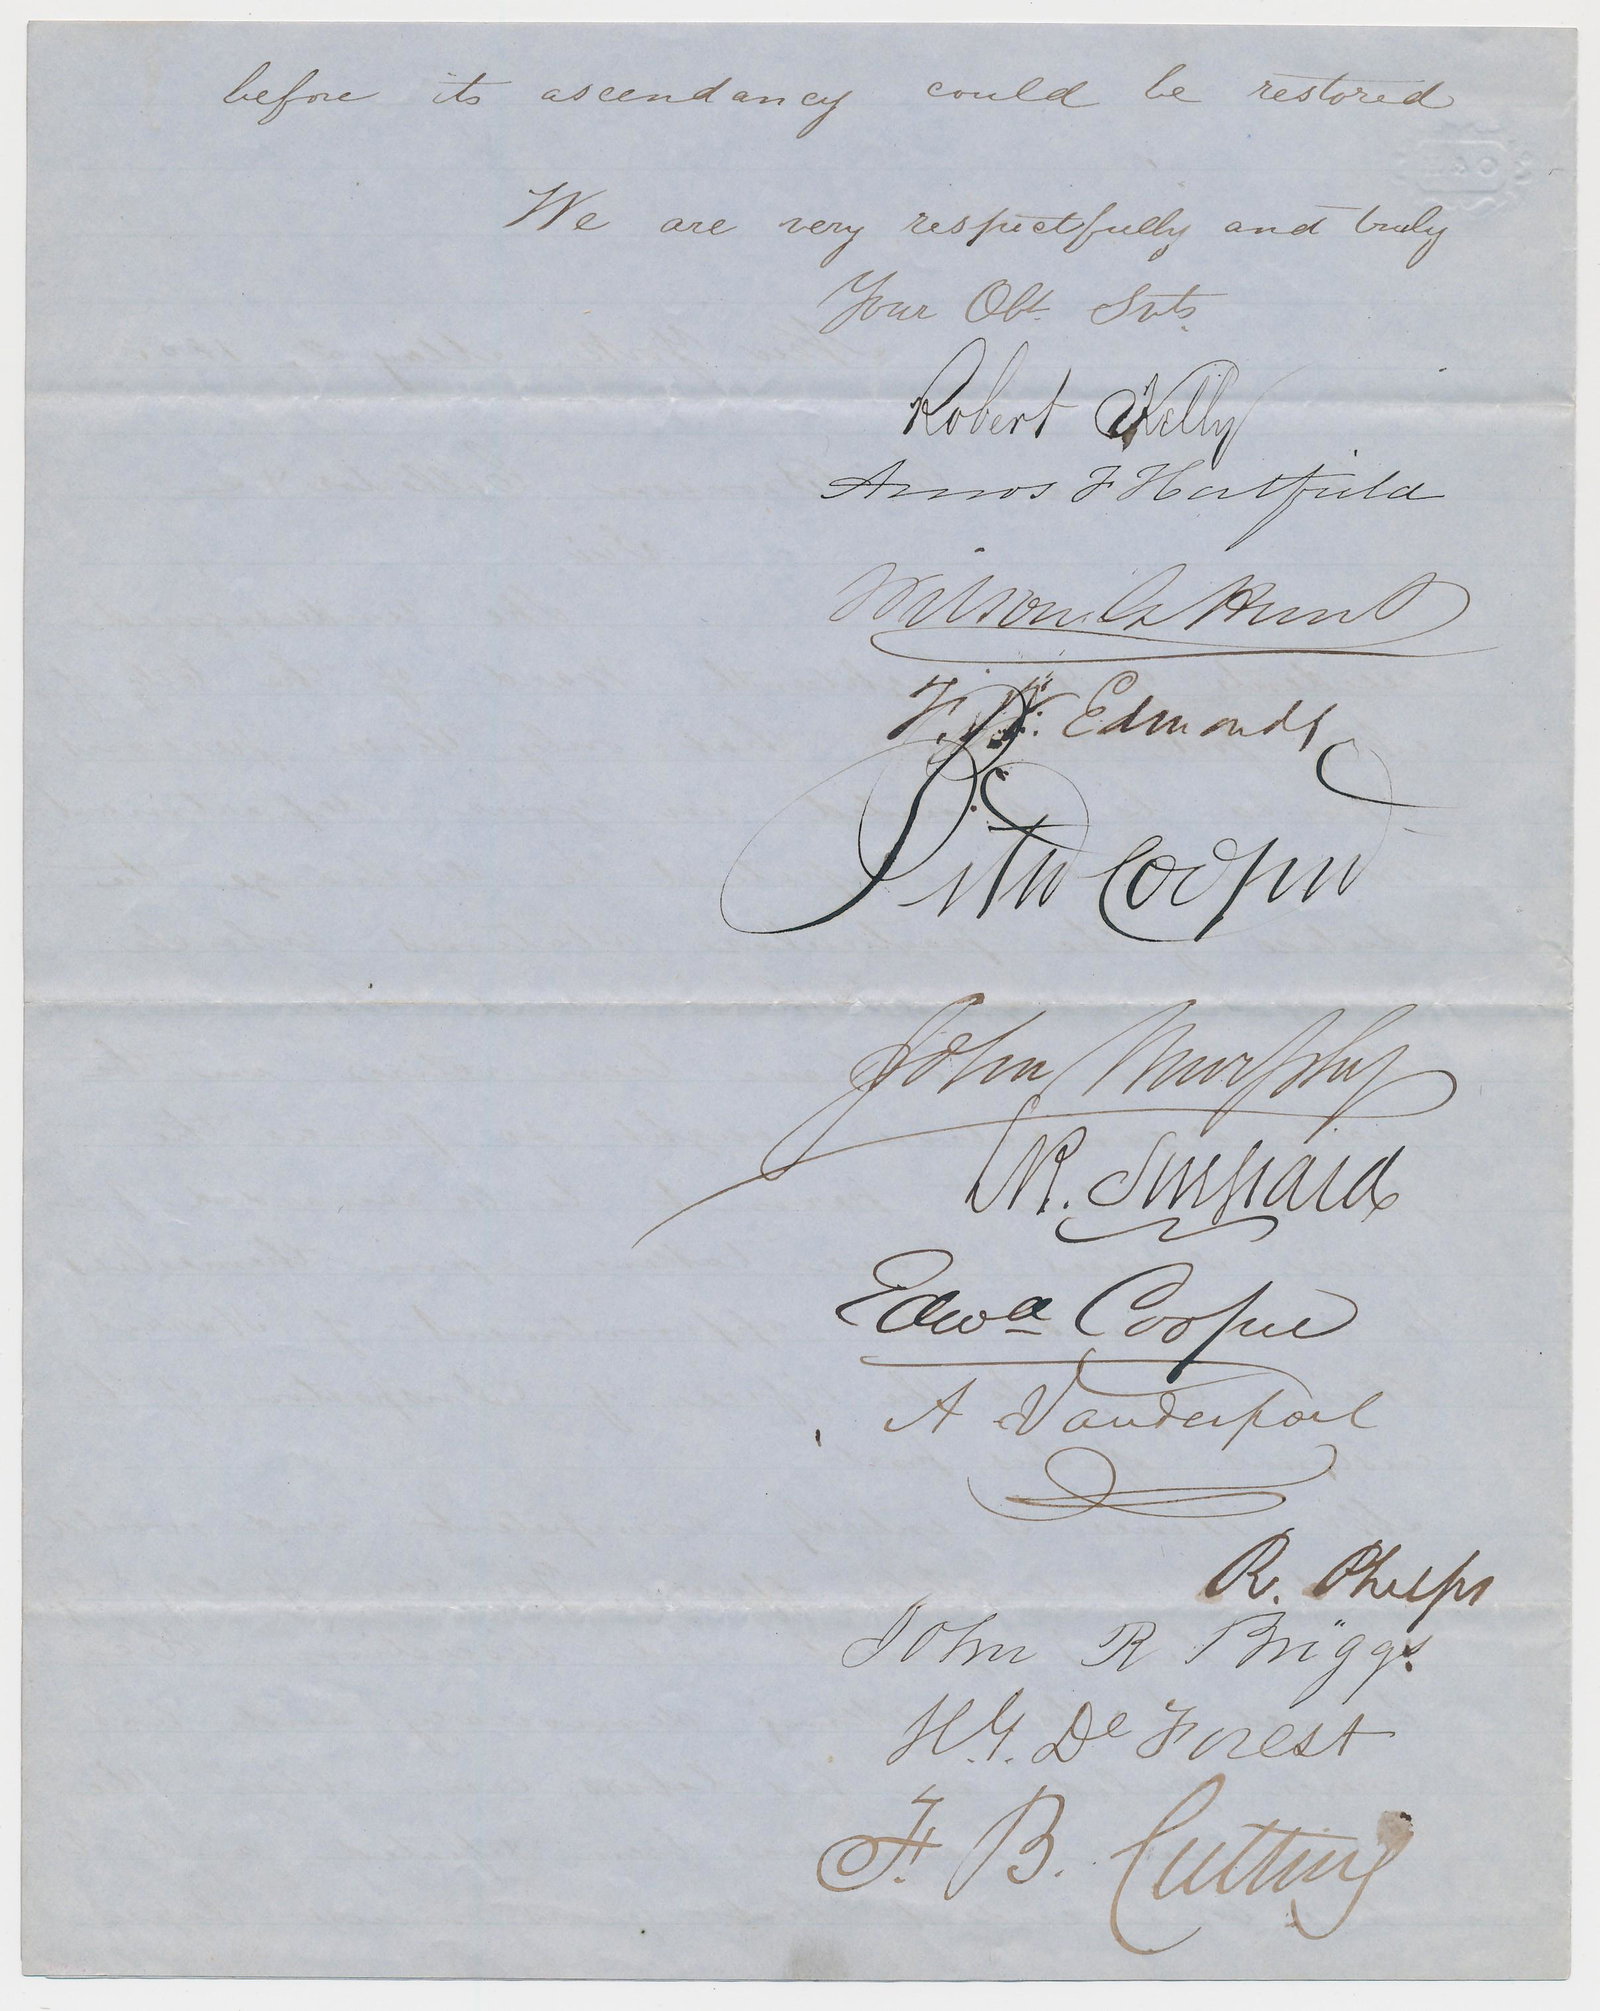 before its ascendancy could be restored
We are very respectfully and truly
Your Obt Svts.
Robert Kelly
Amos F Hatfield
Wilson G Hunt
F. W. Edmonds
Peter Cooper
John Murphy
R. Sheppard
Edwd Cooper
A Vanderpoel
R. Phelps
John R Briggs.
H. G. De Forest
F. B. Cutting